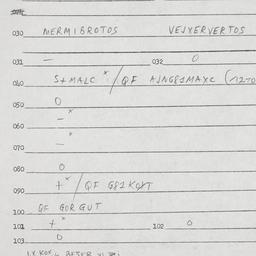 030 NERMIBROTOS VEJYERVERTOS
031 — 032 O
040 S+MALC x / QF AJNG81MAXC (12TO
050 O
060 — x
070 — x
080 O
090 + x / QF G81KOXT
100 QF GORGUT
101 + x 102 O
103 O